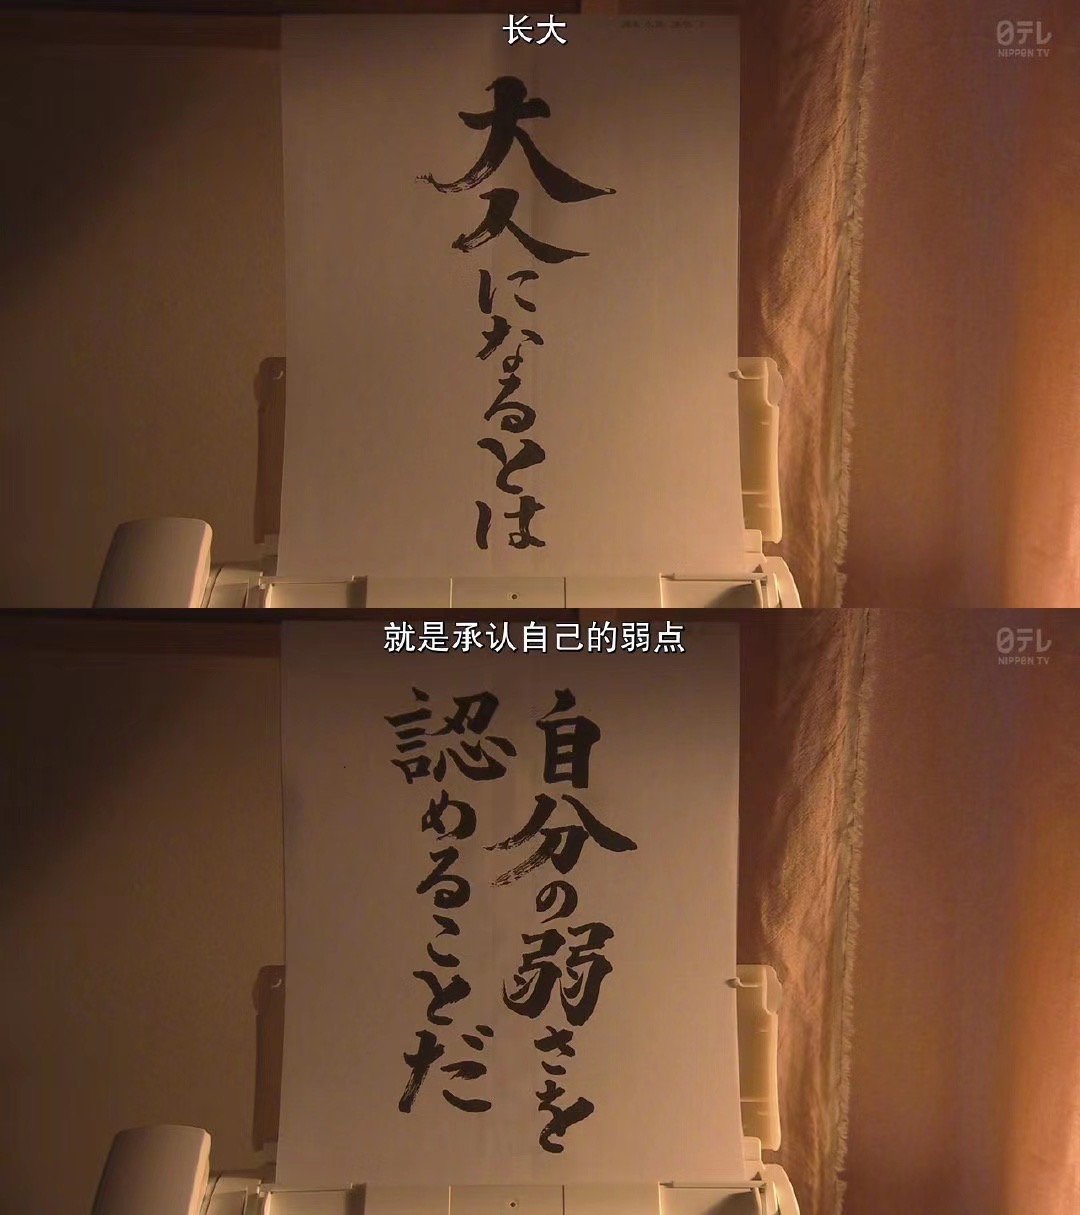 长大
日テレ
NIPPON TV
大人になるとは
就是承认自己的弱点
日テレ
NIPPON TV
自分の弱さを
認めることだ